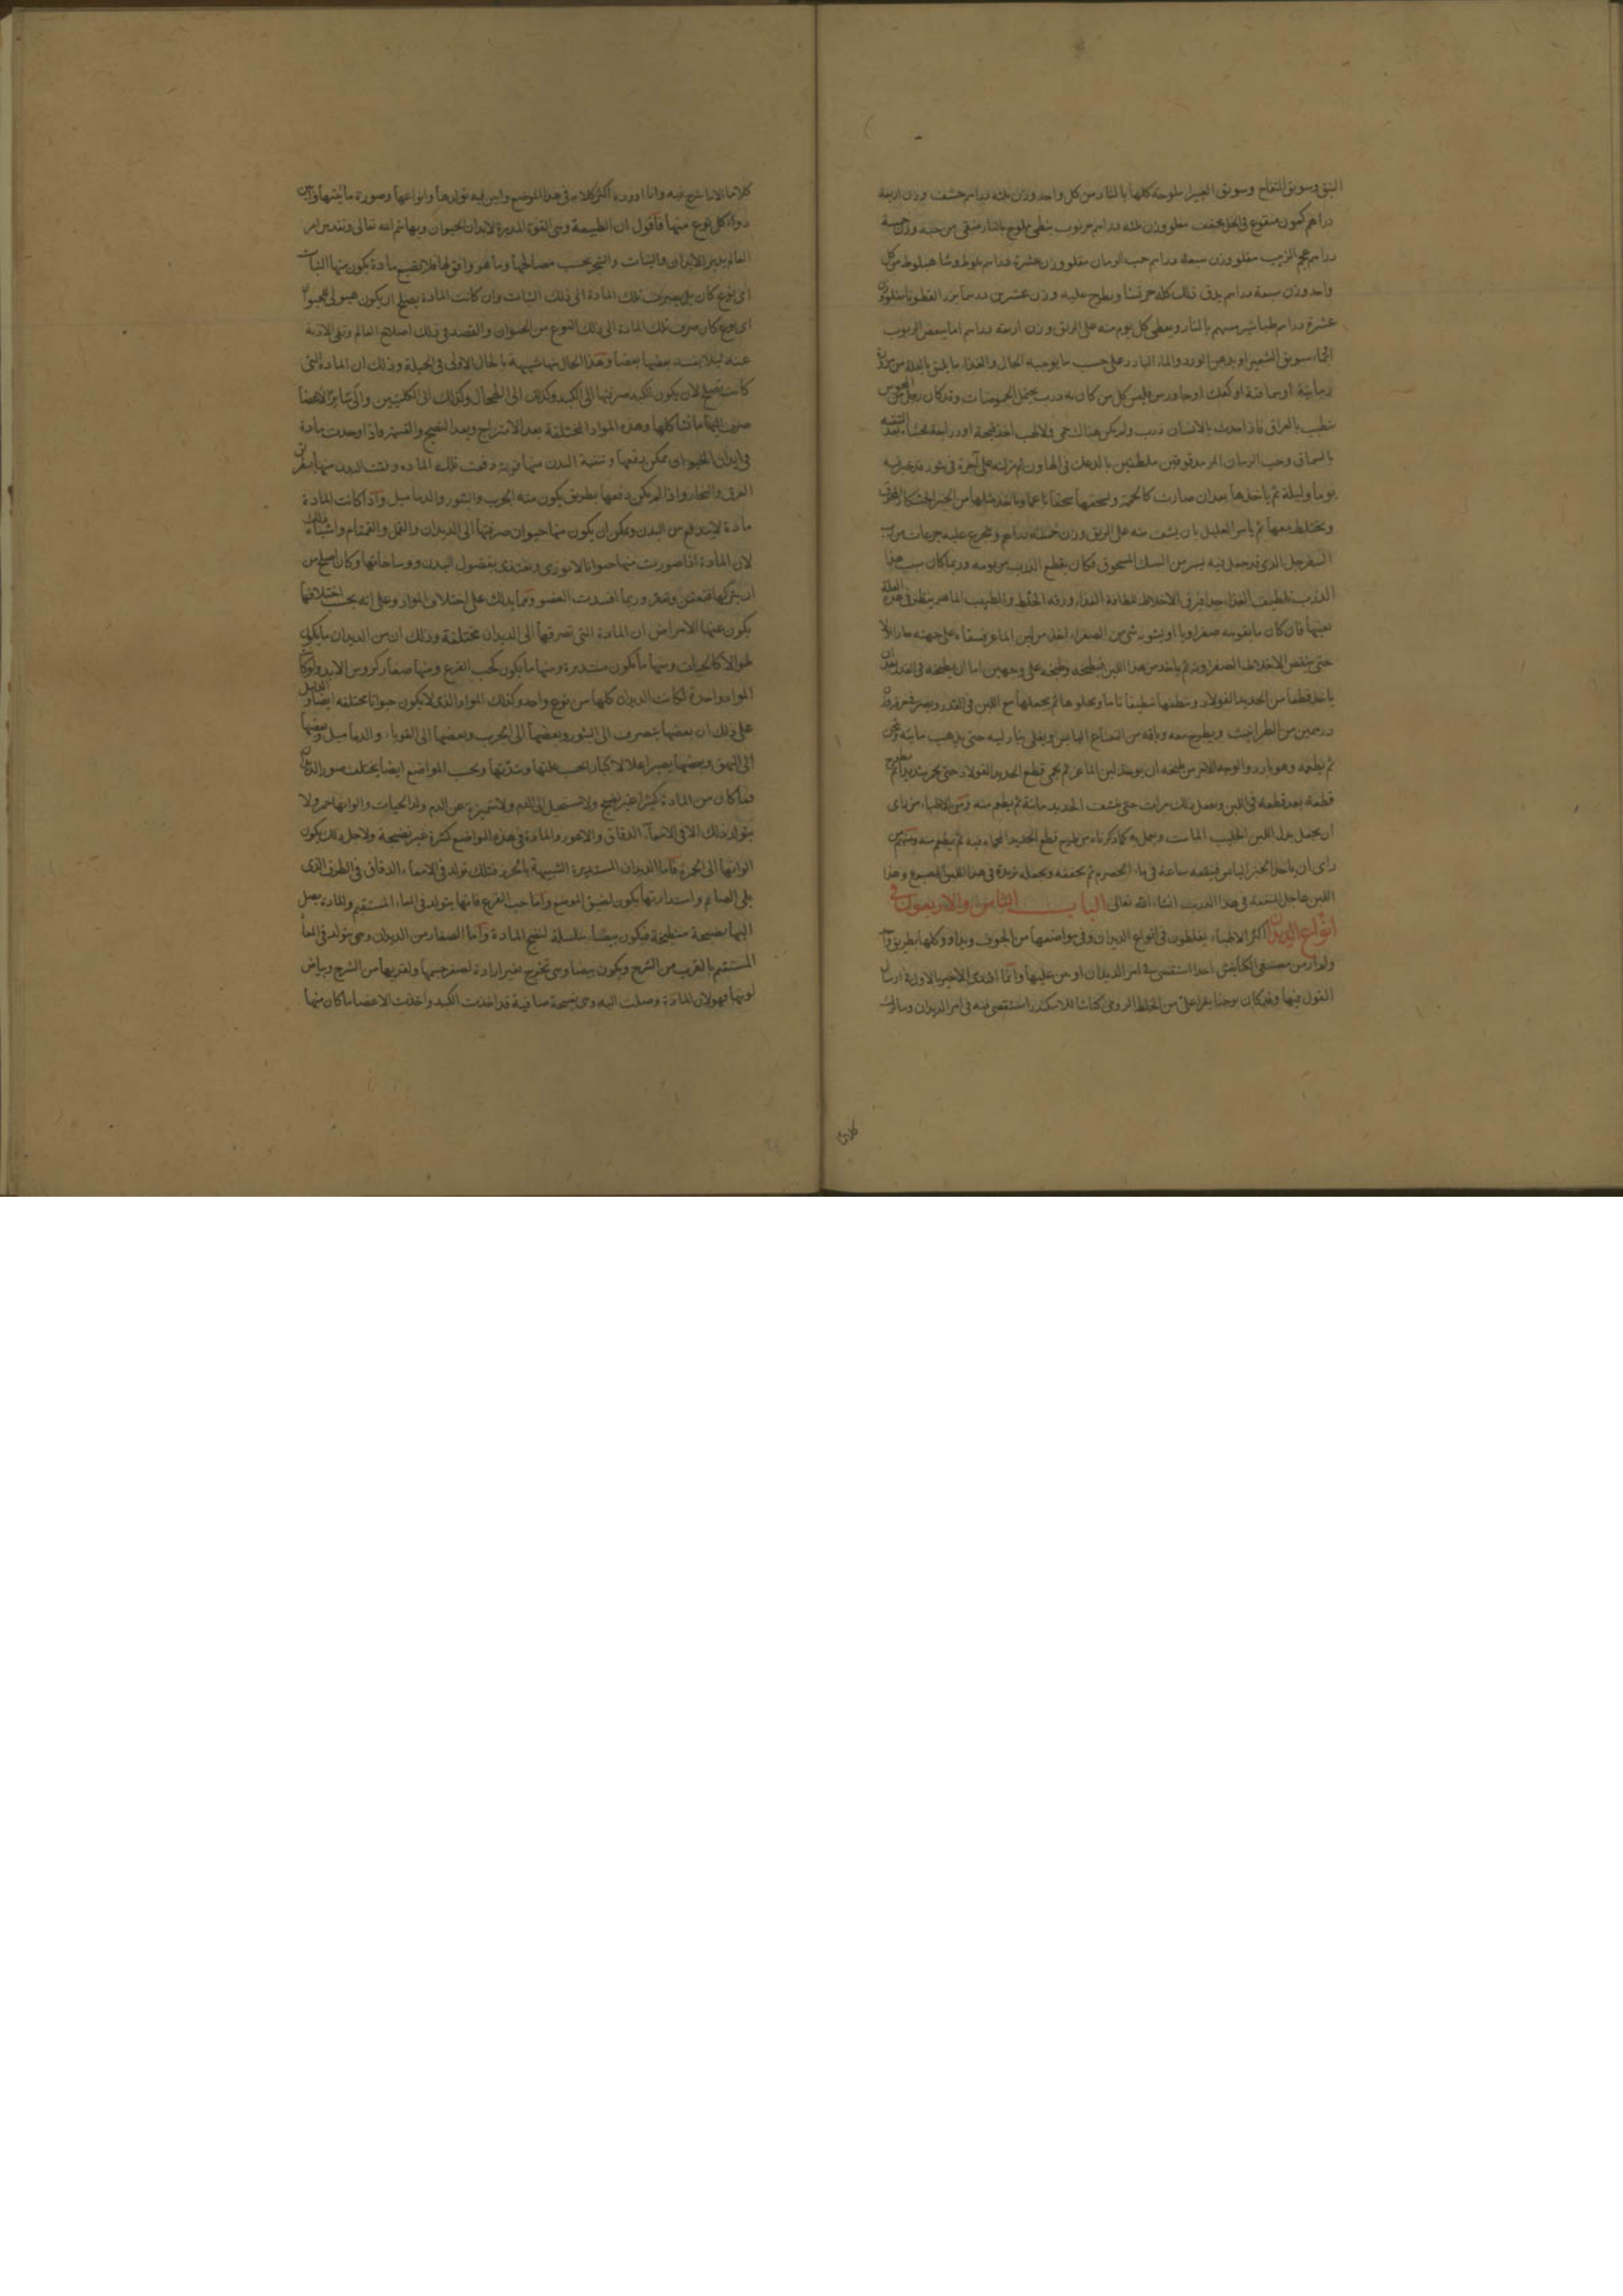 النبق وسويق التفاح وسويق الغبيرا ملوحة كلها بالنار من كل واحد وزن ثلثة دراهم حشف وزن اربعة
دراهم كمون منقوع فى الخل مجفف مقلو وزن ثلثه دراهم خرنوب نبطى ملوح بالنار منقى من حبه وزن خمسة
دراهم عجم الزبيب مقلو وزن سبعة دراهم حب الرمان مقلو وزن عشرة دراهم بلوط وشاهبلوط من كل
واحد وزن سبعة دراهم يدق ذلك كله جريشا ويطرح عليه وزن عشرين درهما بزر القطونا مقلو وزن
عشرة دراهم طباشير بالنار ويعطى كل يوم منه على الريق وزن اربعة دراهم اما ببعض الربوب
سويق الشعير او بدهن الورد والماء البارد على حسب ما يوجبه الحال والغذاء ما يليق بالعلة من مزورة
رمانية او سماقية او كعك او جاورس فليس كل من كان به ذرب يحتمل الحموضات وقد كان رجل من المجوس
يتطبب بالعراق فاذا حدث بالانسان ذرب ولم يكن هناك حمى ولا لهب اخذ
بالسماق وحب الرمان المدقوقين ملطخين بالدعك فى الهاون ثم تركه على آجرة فى تنور
يوما وليلة ثم ياخذها بعد ان صارت كالحممة ويسحقها سحقا ناعما وياخذ مثلها من الخبز الخشكار المحرق
ويختلط معها ثم يامر العليل بان يستف منه على الريق وزن خمسة دراهم ويتجرع عليه جرعات من رب
السفرجل الذى قد جعل فيه يسير من السك المسحوق فكان يقطع الذرب من يومه وربما كان سبب هذا
الذرب تلطيف الغذاء ورقة الخلط والطبيب الماهر ينظر فى هذه العلة
بعينها فان كان
حتى ينقص الاخلاط الصفراوية ثم ياخذ من هذا اللبن فيطبخه وطبخه على وجهين اما ان يطبخه فى القدر بعد ان
ياخذ قطعا من الحديد الفولاذ وينظفها تنظيفا تاما ويجلوها ثم يجعلها مع اللبن فى القدر
درهمين من الطراثيث ويطرح معه وباقة من النعناع اليابس ويغلى بنار لينة حتى يذهب مائيته
ثم يطعمه وهو بارد والوجه الاخر من طبخه ان يوخذ لبن الماعز ثم يحمى قطع الحديد الفولاذ
قطعة بعد قطعة فى اللبن ويفعل ذلك مرات حتى ينشف الحديد مائيته ثم يطعم منه ومن الاطباء من راى
ان يجعل بدل اللبن الحليب الماست ويعمل به كما ذكرناه من طرح قطع الحديد المحماه فيه ثم يطعم منه ومنهم من
راى ان ياخذ الخبز اليابس فينقعه ساعة فى ماء الحصرم ثم يجففه ويجعله ثريدة فى هذا اللبن المصنوع وهذا
اللبن عاجل المنفعة فى هذا الذرب انشاء الله تعالى الباب الثامن والاربعون فى
انواع الديدان اكثر الاطباء يغلطون فى انواع الديدان وفى مواضعها من الجوف ويداوو كلها بطريق واحد
ولم ار من مصنفى الكنانيش احدا استقصى فى امر الديدان
القول فيها وقد كان يوحنا يقرا على من الخط الرومى كناشا للاسكندر استقصى فيه فى امر الديدان
كلاما
كلاما الا ما شرح فيه وانا اورد اكثر كلامه فى هذا الموضع وابين فيه تولدها وانواعها وصورة
دواء كل نوع منها فاقول ان الطبيعة وهى القوة المدبرة لابدان الحيوان وبها يتم الله تعالى وتقدس امر
العالم يدبر الابدان والنبات والشجر بحسب مصالحها وما هو وافق لها فلا تضيع مادة يكون منها النبات
اى نوع كان بل يصرف تلك المادة الى ذلك النبات وان كانت المادة يصلح ان يكون هيولى للحيوان
اى نوع كان صرف تلك المادة الى ذلك النوع من الحيوان والقصد فى ذلك اصلاح العالم ونفى الاذية
عنه ليلا يفسد بعضها بعضا وهذا الحال منها شبيهة بالحال الاولى فى الجبلة وذلك ان المادة التى
كانت تصلح لان يكون الكبد صرفتها الى الكبد وكذلك الى الطحال وكذلك الى الكليتين والى سائر الاعضا
صرف اليها ما تشاكلها وهذه المواد المختلفة بعد الامتزاج وبعد النضج والتميز فاذا وجدت مادة
فى ابدان الحيوان يمكن دفعها وتنقية البدن منها دفعت تلك المادة ونقت البدن منها
العرق والبخار واذا لم يكن دفعها بطريق يكون منه الجرب والبثور والدماميل واذا كانت المادة
مادة لا يندفع من البدن ويمكن ان يكون منها حيوان صرفتها الى الديدان والقمل والقمقام واشباه ذلك
لان المادة اذا صورت منها حيوانا لا توذى وتغتذى بفضول البدن ووساخاتها وكان اصلح من
ان يتركها فتعفن وتضر وربما افسدت العضو ومما يدلك على اختلاف المواد وعلى انه بحسب اختلافها
يكون عنها الامراض ان المادة التى تصرفها الى الديدان مختلفة وذلك ان من الديدان ما يكون
طوالا كالحيات ومنها ما يكون مستديرة ومنها ما يكون كحب القرع ومنها صغار كروس الابر ولو كانت
المواد واحدة لكانت الديدان كلها من نوع واحد وكذلك المواد الذى لا يكون حيوانا مختلفه ايضا والدليل
على ذلك ان بعضها يتصرف الى البثور وبعضها الى الجرب وبعضها الى القوباء والدماميل وبعضها
الى البهق وبعضها يصير اعلالا كبارا بحسب علتها وشدتها وبحسب المواضع ايضا يختلف صور الديدان
فما كان من المادة كثيرا غير نضيج ولا مستحيل الى الدم ولا متميزة عن الدم ولد الحيات والوانها حمر ولا
يتولد ذلك الا فى الامعاء الدقاق والاعور والمادة فى هذه المواضع كثيرة غير نضيجة ولاجل ذلك يكون
الوانها الى الحمرة فاما الديدان المستديرة الشبيهة بالخرز فتلك تولد فى الامعاء الدقاق فى الطرف الذى
يلى الصائم واستدارتها يكون لضيق الموضع واما حب القرع فانها يتولد فى المعاء المستقيم والمادة يصل
اليها نضيجة منطبخة فيكون بيضاء سلسلة لنضج المادة واما الصغار من الديدان وهى يتولد فى المعا
المستقيم بالقرب من الشرج ويكون بيضا وهى تخرج بغير ارادة لصغر جسمها ولقربها من الشرج وبياض
لونها فهو لان المادة وصلت اليه وهى نضيجة صافية قد اخذت الكبد واخذت الاعضا ما كان منها